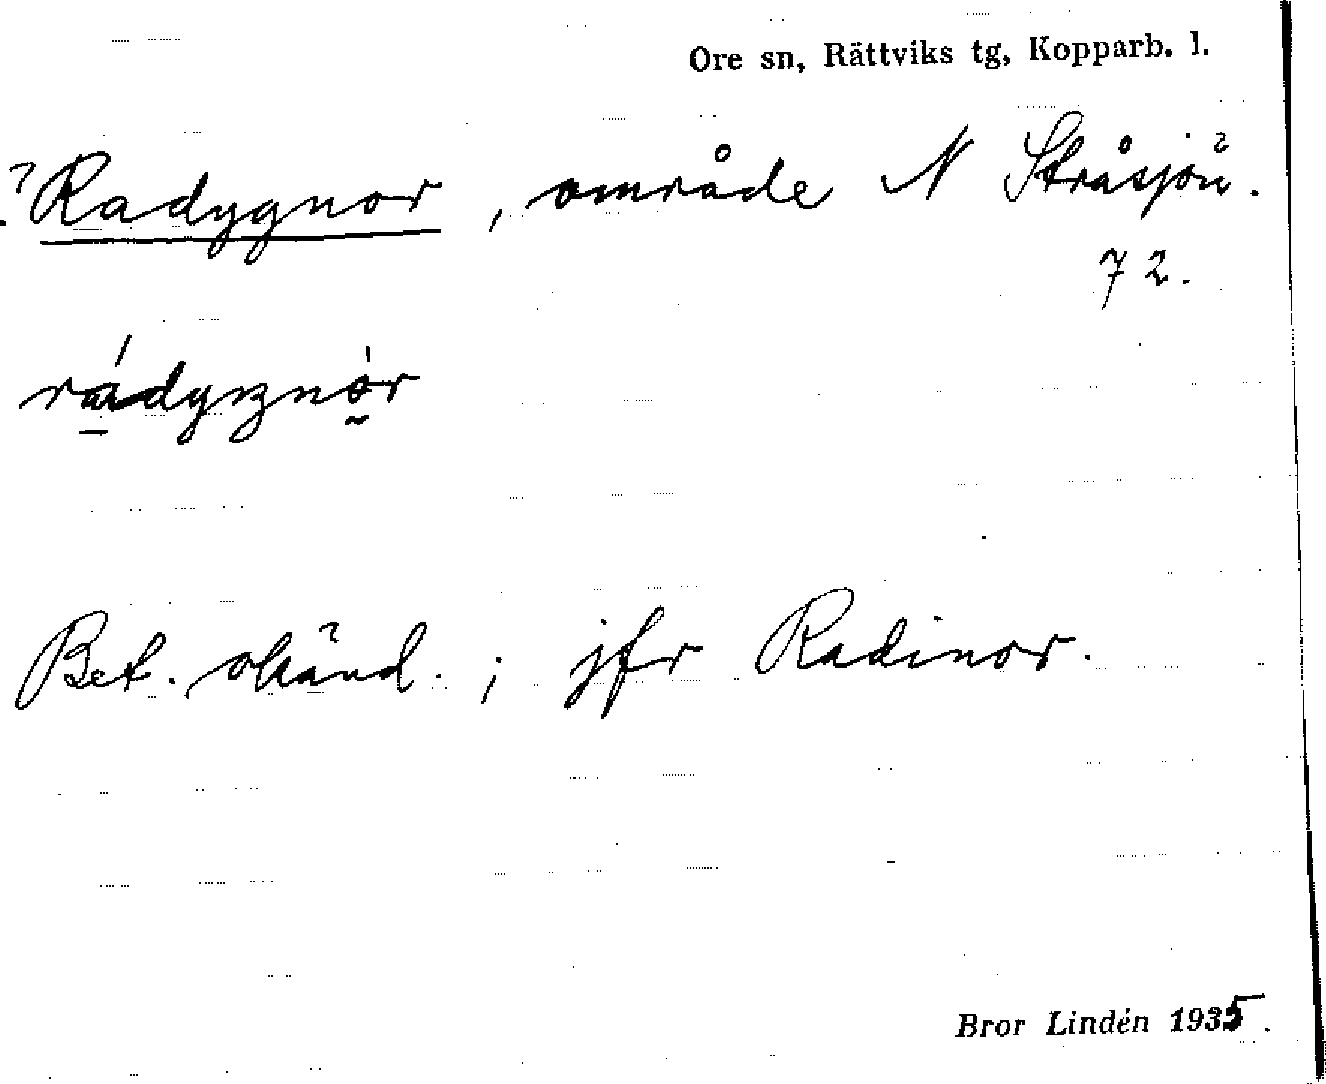 Ore sn, Rättviks tg, Kopparb. l.
? Radygnor, område N Stråsjön.
72.
Bet. okänd.; jfr Radinor.
Bror Lindén 1935.